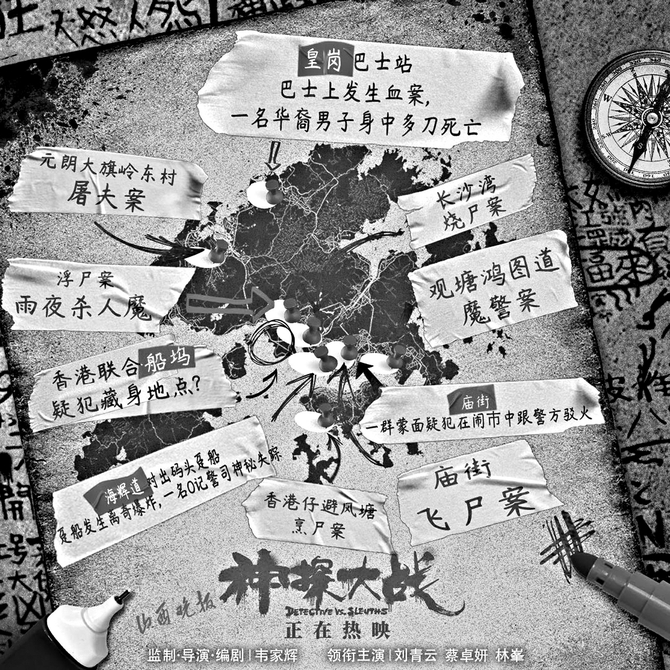 皇岗巴士站
巴士上发生血案，
一名华裔男子身中多刀死亡
元朗大旗岭东村
屠夫案
长沙湾
烧尸案
浮尸案
雨夜杀人魔
观塘鸿图道
魔警案
香港联合船坞
疑犯藏身地点？
庙街
一群蒙面疑犯在闹市中跟警方驳火
海辉道对出码头趸船
趸船发生离奇爆炸，一名O记警司神秘失踪
香港仔避风塘
烹尸案
庙街
飞尸案
神探大战
DETECTIVE VS. SLEUTHS
山西晚报
正在热映
监制·导演·编剧|韦家辉 领衔主演|刘青云 蔡卓妍 林峯